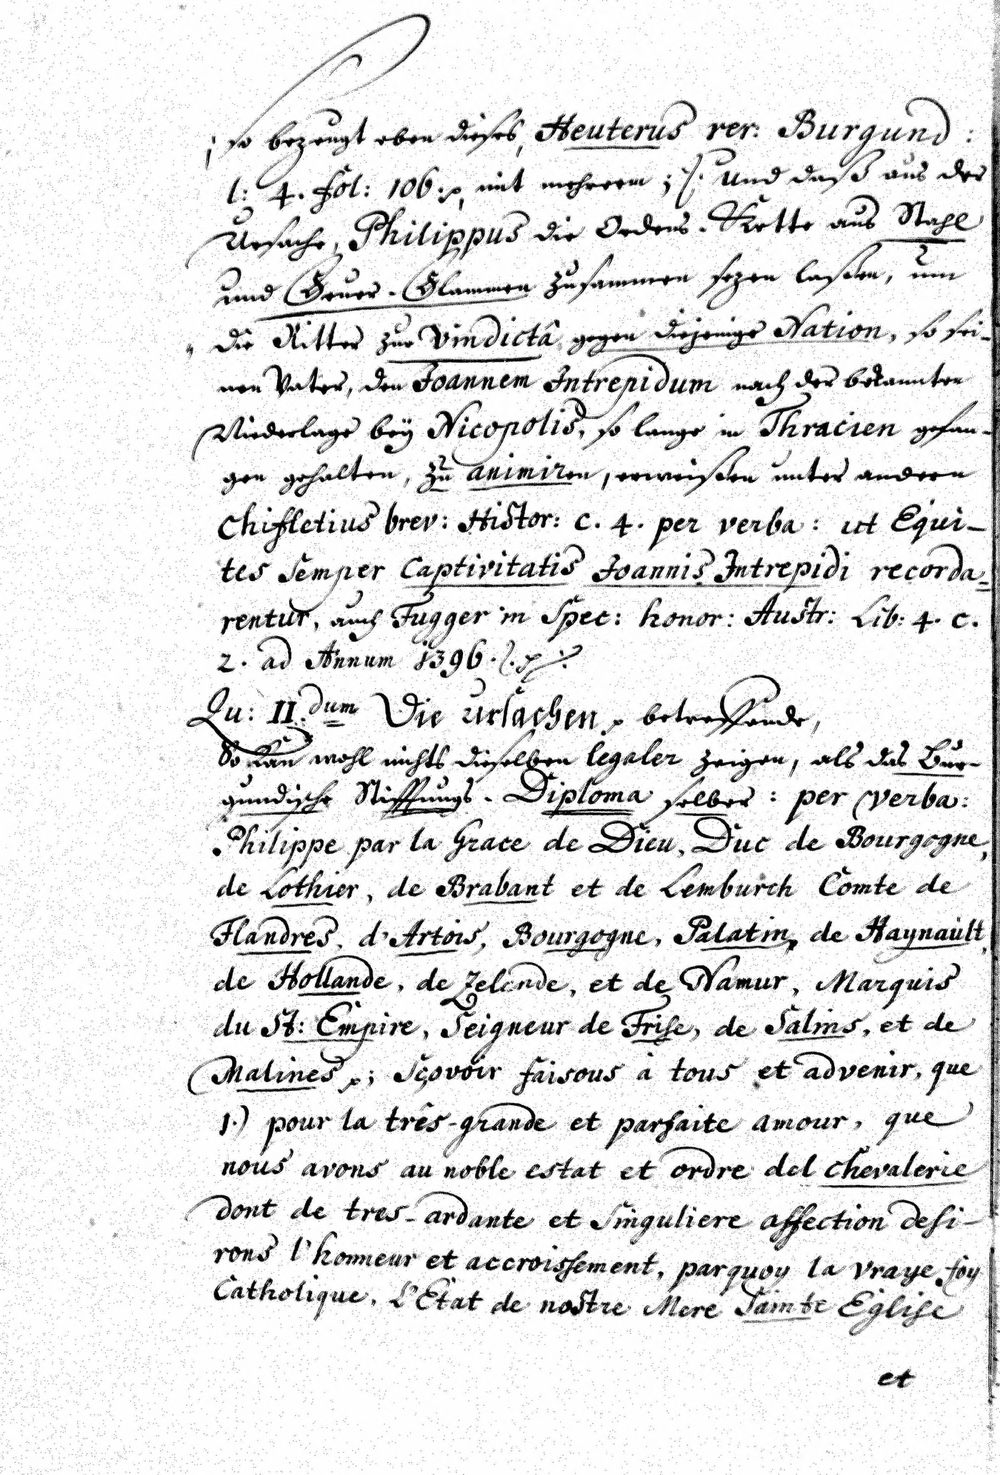 ; so bezeugt eben dieses, Heuterus rer: Burgund:
l: 4. fol: 106. mit mehrerm ; und daß aus der
Ursache, Philippus die Ordens-Kette aus Stahl
und Feuer-Flammen zusammen sezen laßen, um
die Ritter zur Vindictâ gegen diejenige Nation, so sei-
nen Vater, den Joannem Intrepidum nach der bekannten
Niederlage beÿ Nicopolis, so lange in Thracien gefan-
gen gehalten, zu animiren, erweißen unter andern
Chifletius brev: Histor: c. 4. per verba: ut Equi-
tes Semper Captivitatis Joannis Intrepidi recorda-
rentur, auch Fugger in Spec: honor: Austr: Lib: 4. c.
2. ad Annum 1396.
Qu: II.dum Die ursachen betreffende,
So kan wohl nichts dieselben legaler zeigen, als das Bur-
gundische Stifftungs-Diploma selber: per verba:
Philippe par la Grace de Dieu, Duc de Bourgogne,
de Lothier, de Brabant et de Lemburch Comte de
Flandres, d'Artois, Bourgogne, Palatin, de Haynault,
de Hollande, de Zelende, et de Namur, Marquis
du St: Empire, Seigneur de Frise, de Salins, et de
Malines ; Sçovoir faisous à tous et advenir, que
1.) pour la três-grande et parfaite amour, que
nous avons au noble estat et ordre del chevalerie
dont de tres-ardante et Singuliere affection desi-
rons l'honneur et accroissement, parquoy la vraye foy
Catholique, L'Etat de nostre Mere Sainte Eglise
et